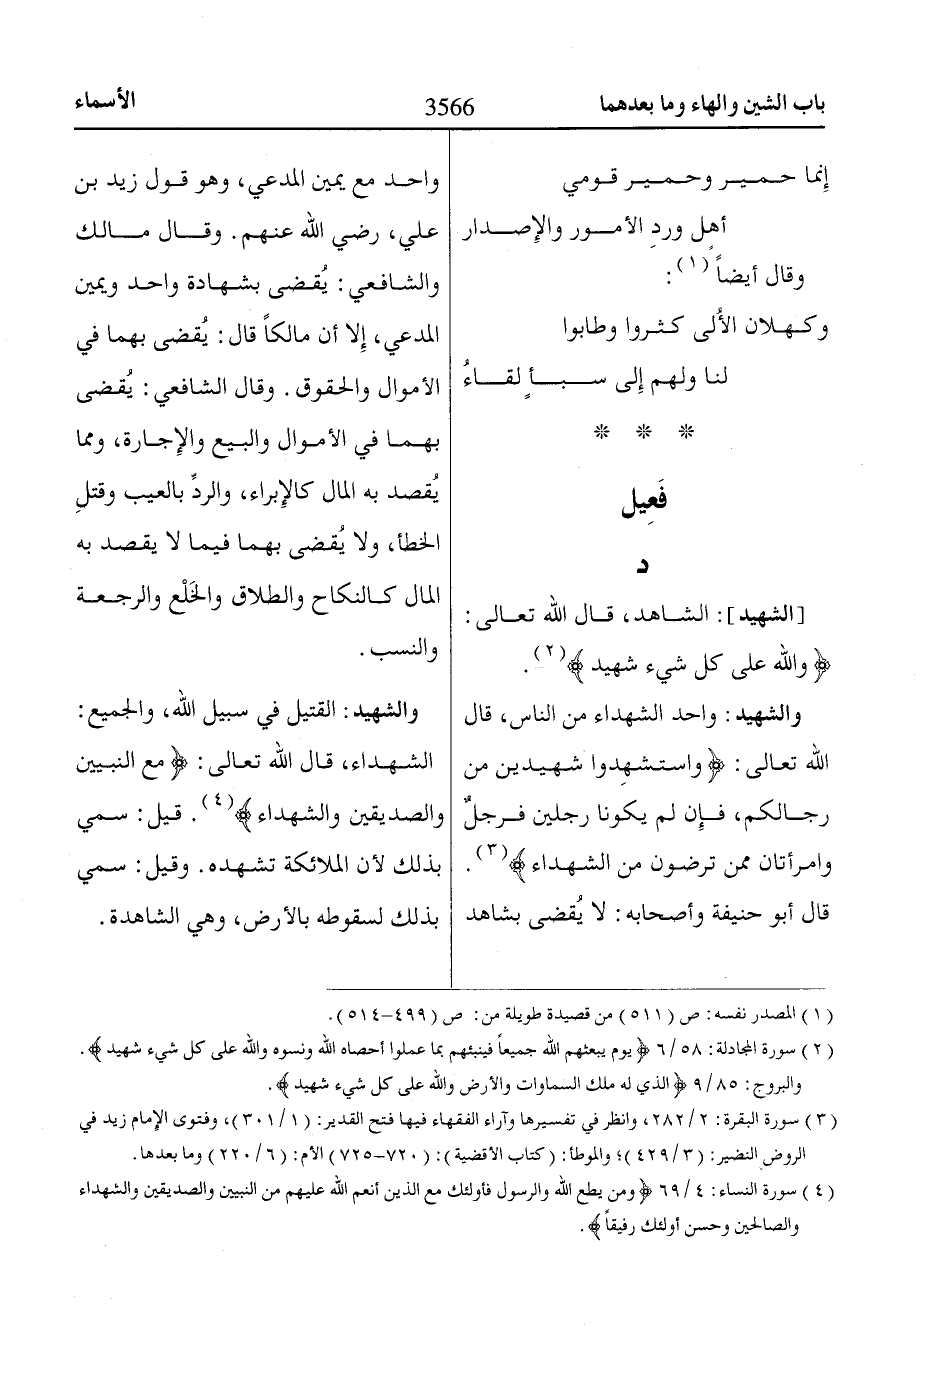 باب الشين والهاء وما بعدهما
3566
الأسماء
إنما حمير وحمير قومي
أهل وردِ الأمور والإصدار
وقال أيضاً (١):
وكهلان الأُلى كثروا وطابوا
لنا ولهم إلى سبأٍ لقاءُ
* * *
فَعِيل
د
[الشهيد]: الشاهد، قال الله تعالى:
﴿والله على كل شيء شهيد﴾(٢).
والشهيد: واحد الشهداء من الناس، قال
الله تعالى: ﴿واستشهدوا شهيدين من
رجالكم، فإن لم يكونا رجلين فرجلٌ
وامرأتان ممن ترضون من الشهداء﴾(٣).
قال أبو حنيفة وأصحابه: لا يُقضى بشاهد
واحد مع يمين المدعي، وهو قول زيد بن
علي، رضي الله عنهم. وقال مالك
والشافعي: يُقضى بشهادة واحد ويمين
المدعي، إلا أن مالكاً قال: يُقضى بهما في
الأموال والحقوق. وقال الشافعي: يُقضى
بهما في الأموال والبيع والإجارة، ومما
يُقصد به المال كالإبراء، والردِّ بالعيب وقتلِ
الخطأ، ولا يُقضى بهما فيما لا يقصد به
المال كالنكاح والطلاق والخَلْع والرجعة
والنسب.
والشهيد: القتيل في سبيل الله، والجميع:
الشهداء، قال الله تعالى: ﴿مع النبيين
والصديقين والشهداء﴾(٤). قيل: سمي
بذلك لأن الملائكة تشهده. وقيل: سمي
بذلك لسقوطه بالأرض، وهي الشاهدة.
(١) المصدر نفسه: ص (٥١١) من قصيدة طويلة من: ص (٤٩٩-٥١٤).
(٢) سورة المجادلة: ٥٨/ ٦ ﴿يوم يبعثهم الله جميعاً فينبئهم بما عملوا أحصاه الله ونسوه والله على كل شيء شهيد﴾.
والبروج: ٨٥/ ٩ ﴿الذي له ملك السماوات والأرض والله على كل شيء شهيد﴾.
(٣) سورة البقرة: ٢/ ٢٨٢، وانظر في تفسيرها وآراء الفقهاء فيها فتح القدير: (١/ ٣٠١)، وفتوى الإمام زيد في
الروض النضير: (٣/ ٤٢٩)؛ والموطأ: (كتاب الأقضية): (٧٢٠-٧٢٥) الأم: (٦/ ٢٢٠) وما بعدها.
(٤) سورة النساء: ٤/ ٦٩ ﴿ومن يطع الله والرسول فأولئك مع الذين أنعم الله عليهم من النبيين والصديقين والشهداء
والصالحين وحسن أولئك رفيقاً﴾.